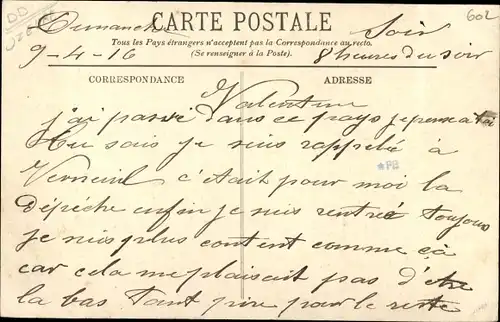 602
Dimanche CARTE POSTALE Soir
Tous les Pays étrangers n'acceptent pas la Correspondance au recto.
9-4-16 (Se renseigner à la Poste). 8 heures du soir
CORRESPONDANCE ADRESSE
Valentine
j'ai passé dans ce pays je pense a toi
Tu sais je suis rappelé à
Verneuil c'était pour moi la
dépêche enfin je suis rentré toujours
PB
je suis plus content comme çà
car cela me plaisait pas d'être
la bas Tant pire pour le reste